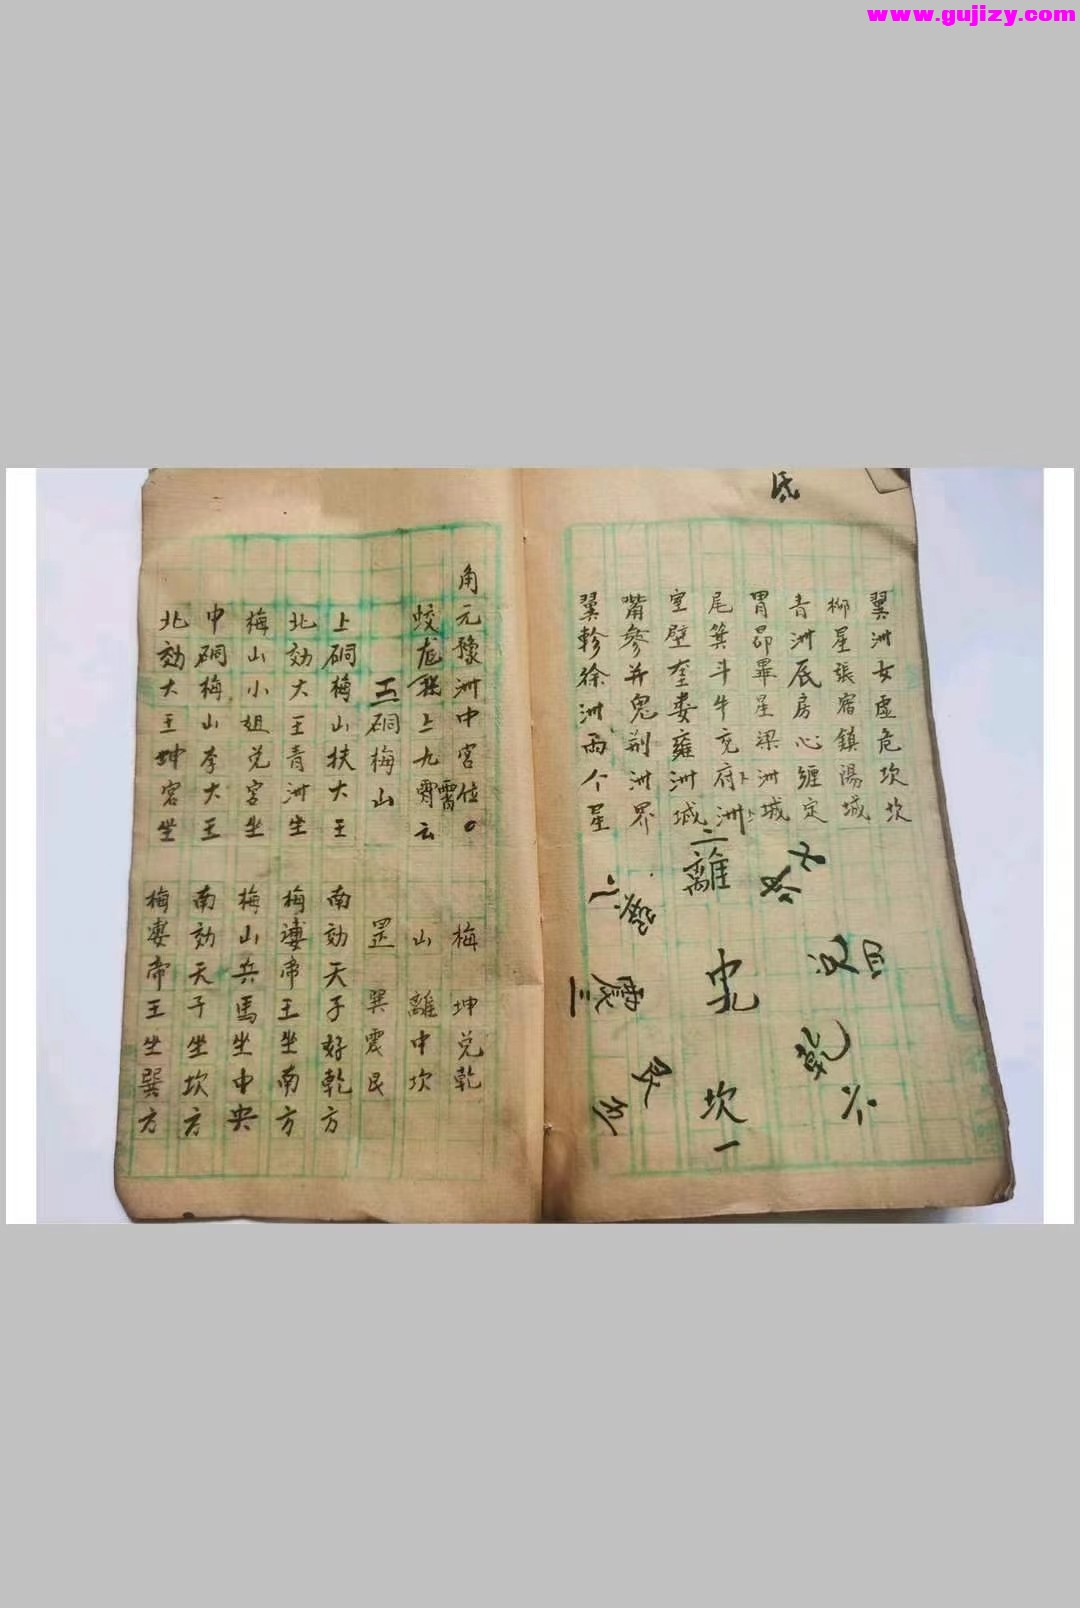 www.gujizy.com
氐
翼洲女虛危坎坎
柳星張宿鎮陽城
青洲氐房心纏定
胃昴畢星梁洲城
尾箕斗牛兗府洲
室壁奎娄雍洲城
觜參井鬼荆洲界
翼軫徐洲兩个星
二離
震三
中九
四
乾六
艮
坎一
角元豫洲中宮位
蛟龙 上九霄云
霄
工硐梅山
梅 坤兌乾
山 離中坎
罡 巽震艮
上硐梅山扶大王 南効天子好乾方
北効大王青洲坐 梅凄帝王坐南方
梅山小姐兌宮坐 梅山兵馬坐中央
中硐梅山李大王 南効天子坐坎方
北効大王坤宮坐 梅凄帝王坐巽方